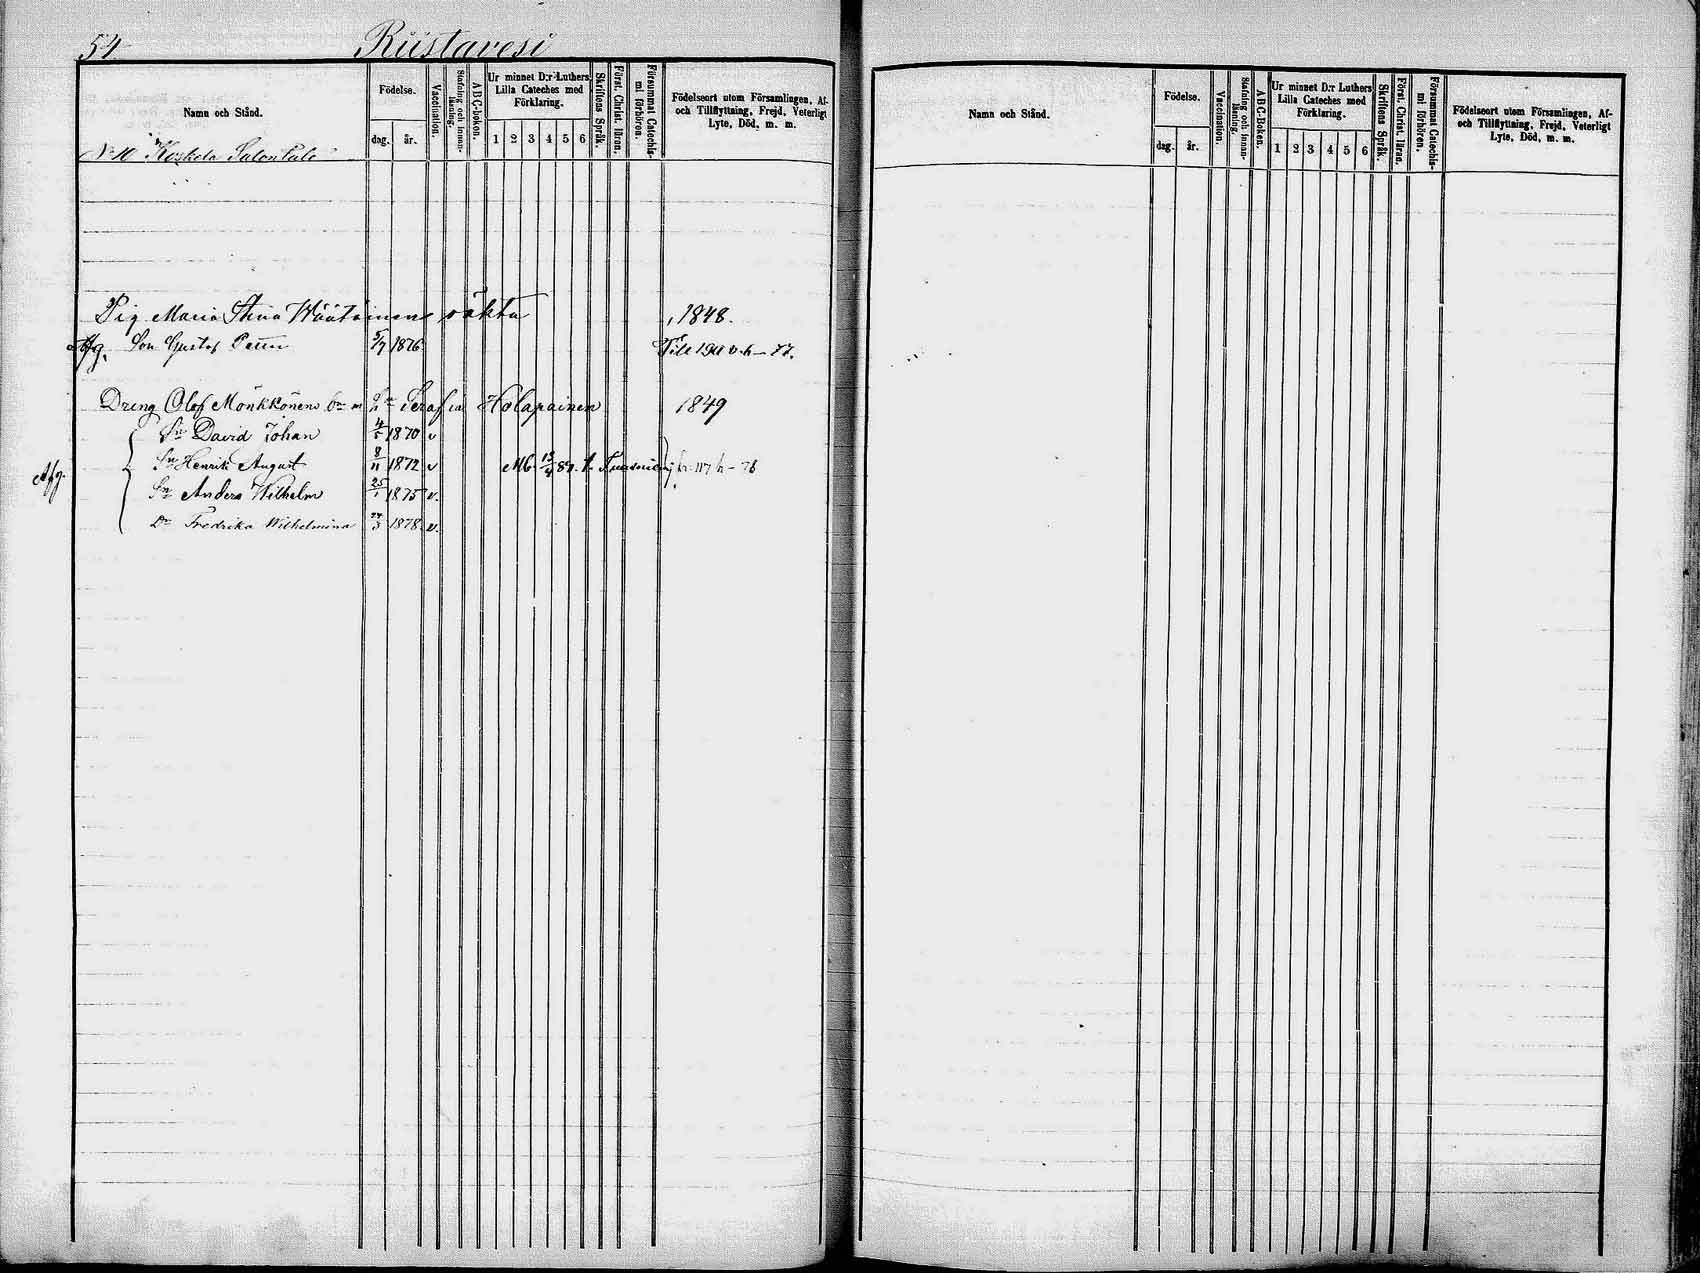 54.
Riistavesi
Namn och Stånd.
Födelse.
dag.
år.
Vaccination.
Stafning och innanläsning.
A B C-boken.
Ur minnet D:r Luthers Lilla Cateches med Förklaring.
1 2 3 4 5 6
Skriftens Språk.
Först. Christ. läran.
Försummat Catechismi förhören.
Födelseort utom Församlingen, Af- och Tillflyttning, Frejd, Veterligt Lyte, Död, m. m.
No 10 Koskela
Pig Maria Stina Väätäinen oäkta 1848.
Afg. Son Gustaf Petter 5/7 1876 Till 190 v. h – 77.
Dreng Olof Mönkkönens Holapainen 1849
Sn David Johan 4/5 1870 v
Afg. Sn Henrik August 8/11 1872 v Mb. 13/4 87. t. fr. 117 h – 76
Sn Anders Wilhelm 25/1 1875 v.
Dr Fredrika Wilhelmina 1878 v.
Namn och Stånd.
Födelse.
dag.
år.
Vaccination.
Stafning och innanläsning.
A-B-C-Boken.
Ur minnet D:r Luthers Lilla Cateches med Förklaring.
1 2 3 4 5 6
Skriftens Språk.
Först. Christ. läran.
Försummat Catechismi förhören.
Födelseort utom Församlingen, Af- och Tillflyttning, Frejd, Veterligt Lyte, Död, m. m.